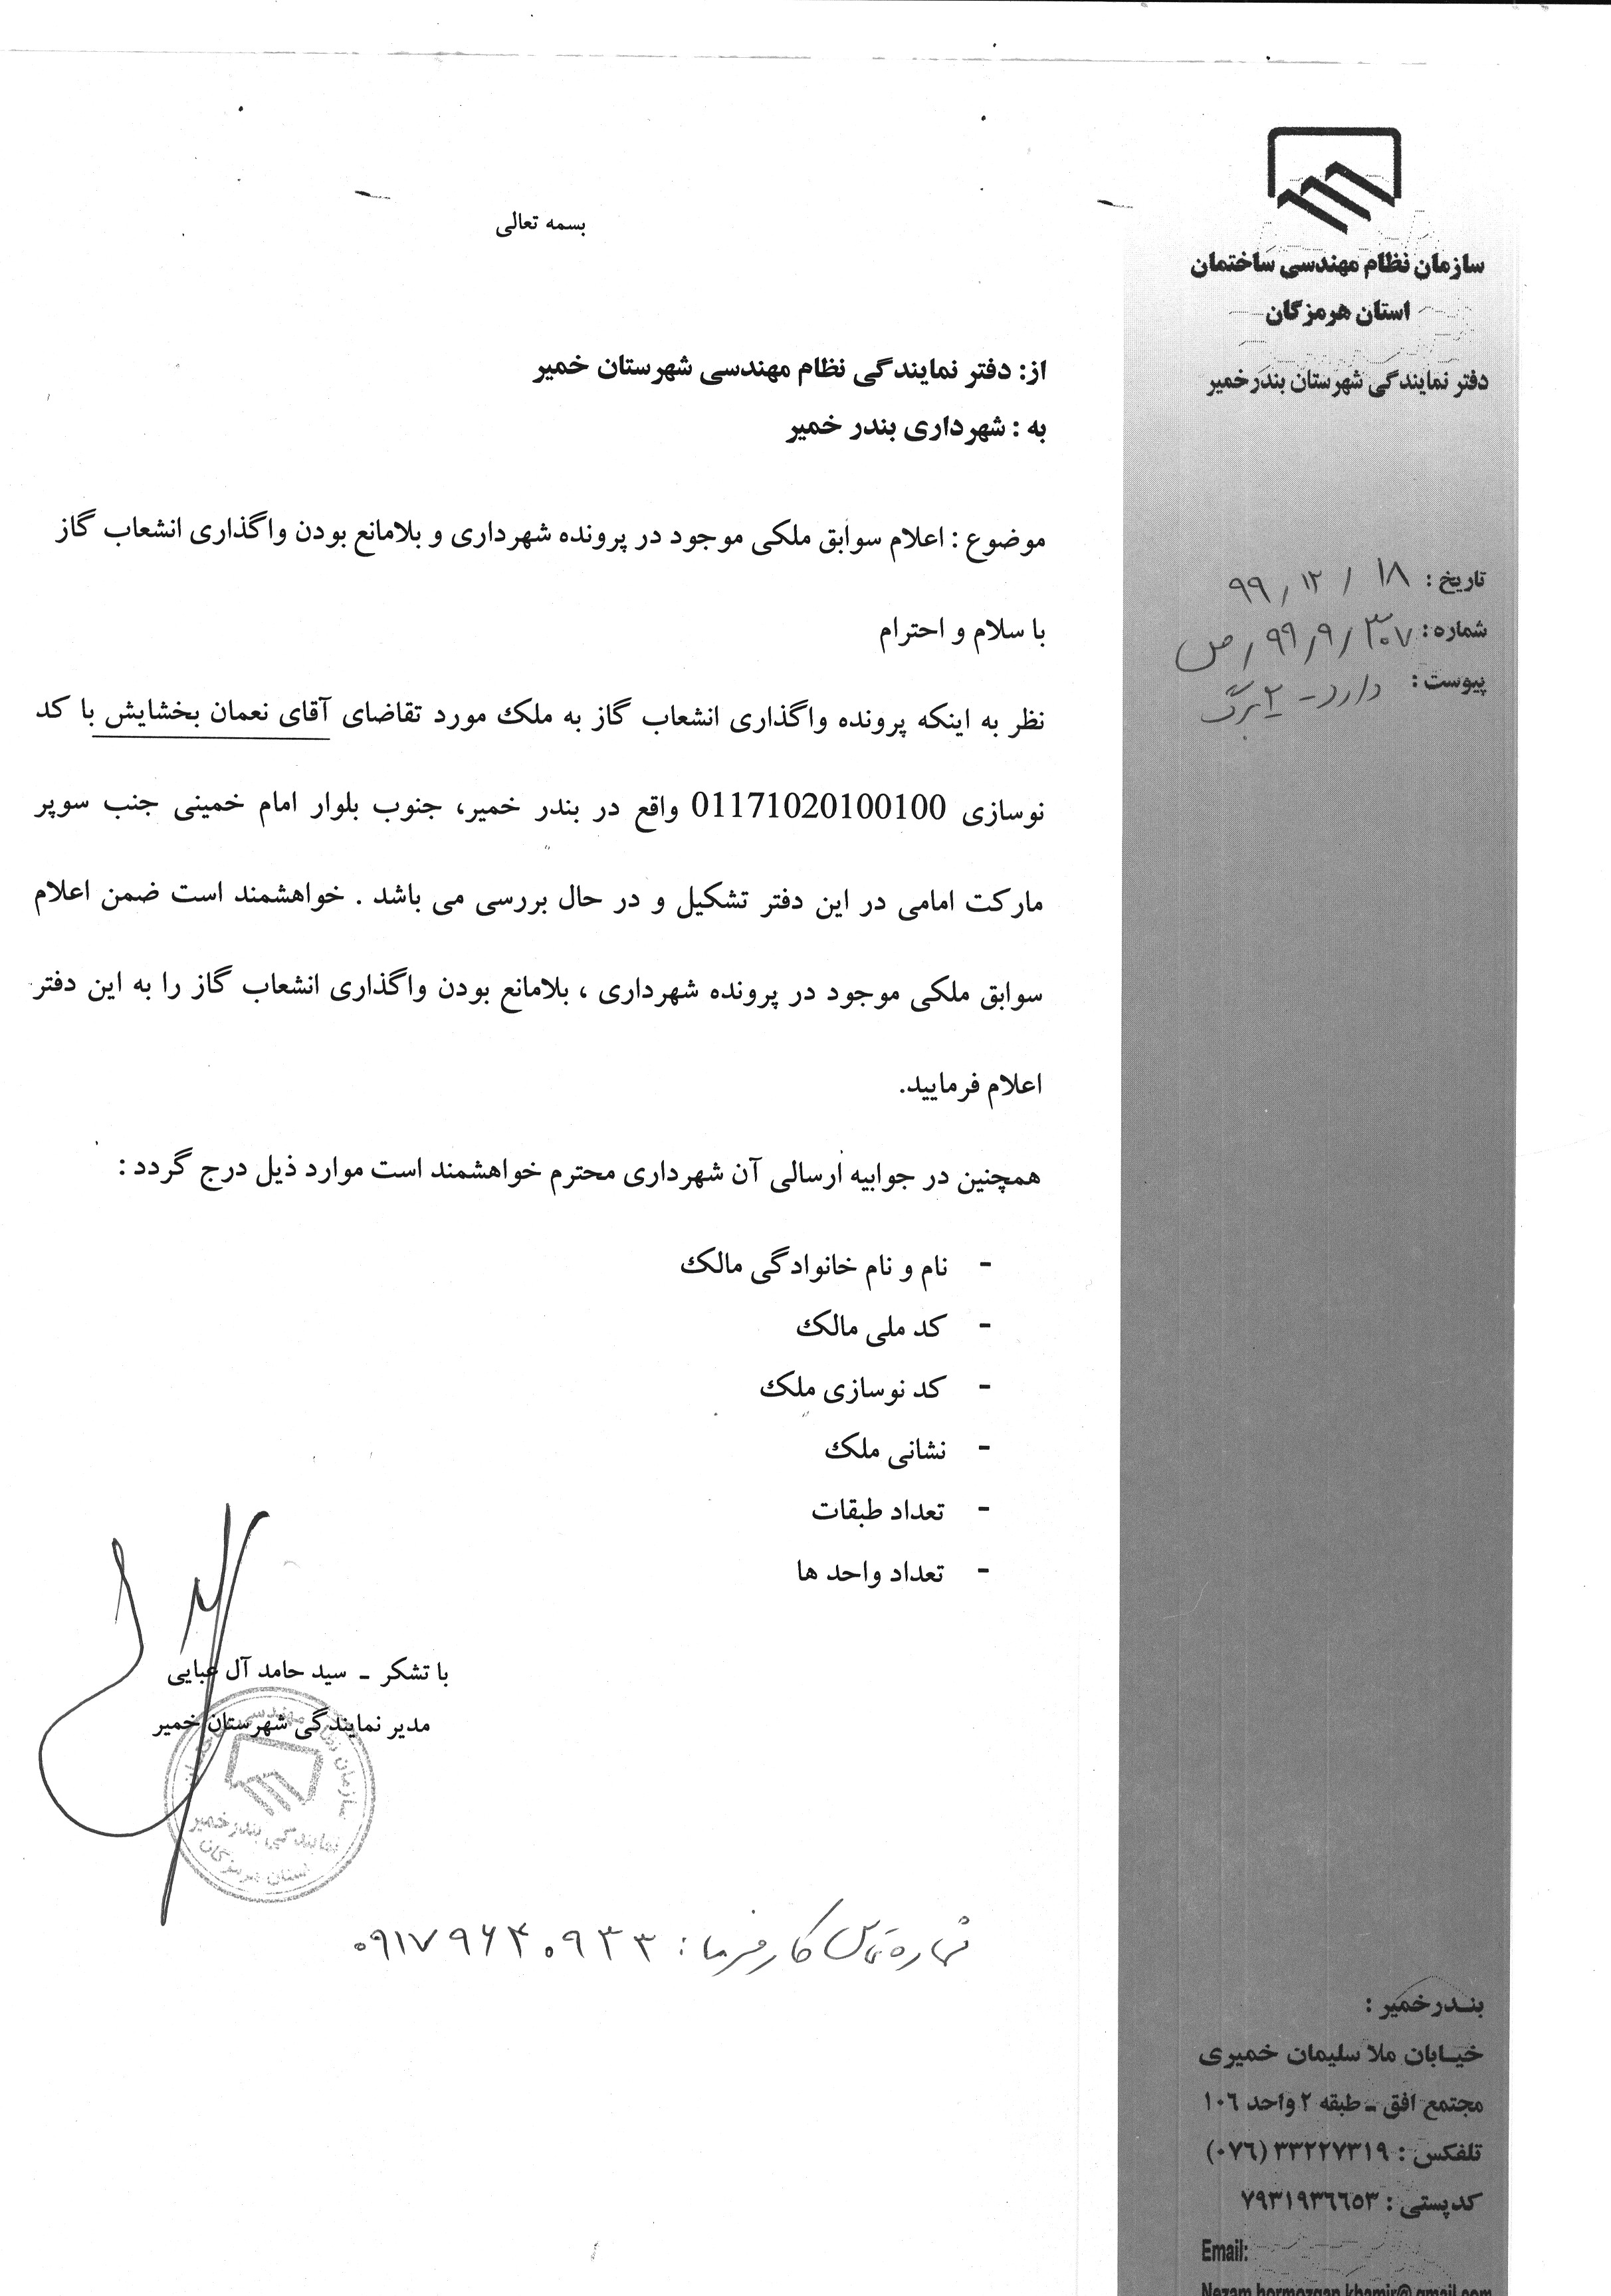 بسمه تعالی
سازمان نظام مهندسی ساختمان
استان هرمزگان
دفتر نمایندگی شهرستان بندرخمیر
تاریخ : ۹۹/۱۲/۱۸
شماره : ۳۰۷/۹/۹۹/ص
پیوست : دارد - ۲ برگ
از: دفتر نمایندگی نظام مهندسی شهرستان خمیر
به : شهرداری بندر خمیر
موضوع : اعلام سوابق ملکی موجود در پرونده شهرداری و بلامانع بودن واگذاری انشعاب گاز
با سلام و احترام
نظر به اینکه پرونده واگذاری انشعاب گاز به ملک مورد تقاضای آقای نعمان بخشایش با کد
نوسازی 01171020100100 واقع در بندر خمیر، جنوب بلوار امام خمینی جنب سوپر
مارکت امامی در این دفتر تشکیل و در حال بررسی می باشد . خواهشمند است ضمن اعلام
سوابق ملکی موجود در پرونده شهرداری ، بلامانع بودن واگذاری انشعاب گاز را به این دفتر
اعلام فرمایید.
همچنین در جوابیه ارسالی آن شهرداری محترم خواهشمند است موارد ذیل درج گردد :
- نام و نام خانوادگی مالک
- کد ملی مالک
- کد نوسازی ملک
- نشانی ملک
- تعداد طبقات
- تعداد واحد ها
با تشکر - سید حامد آل عبایی
مدیر نمایندگی شهرستان خمیر
نمایندگی بندرخمیر
استان هرمزگان
شماره تماس کارفرما : ۰۹۱۷۹۶۴۰۹۳۳
بندرخمیر :
خیابان ملا سلیمان خمیری
مجتمع افق - طبقه ۲ واحد ۱۰۶
تلفکس : ۳۳۲۲۷۳۱۹ (۰۷۶)
کدپستی : ۷۹۳۱۹۳۶۶۵۳
Email:
Nezam.hormozgan.khamir@gmail.com